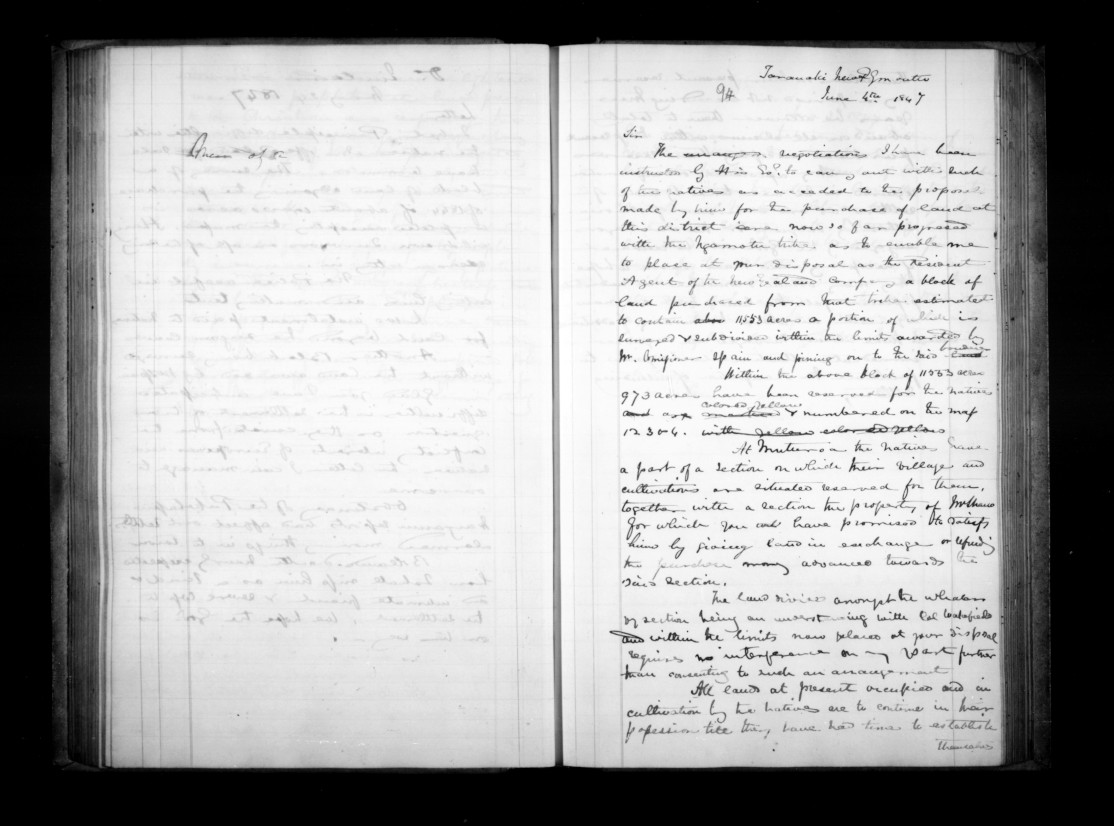 Taranaki New Plymouth
94 June 4th 1847
Sir
The arrangts. negotiations I have been
instructed by His Ex. to carry out with such
of the natives as acceded to the proposal
made by him for the purchase of land at
this district are now so far progressed
with the Ngamotu tribe as to enable me
to place at your disposal as the Resident
Agent of the New Zealand Company a block of
land purchased from that tribe estimated
to contain abou 11553 acres a portion of which is
surveyed & subdivided within the limits awarded by
Mr. Comissioner Spain and joining on to the said boundary land
Within the above block of 11553 acres
973 acres have been reserved for the natives
and are colored yellow & numbered on the map
1 2 3 & 4. with yellow colored yellow
At Moturoa the natives have
a part of a section on which their village and
cultivations are situated reserved for them,
together with a section the property of
for which you have promised to satisfy
him by giving land in exchange or refunding
the purchase money advanced towards the
said section.
The land divided amongst the whalers
by section being an understanding with Col Wakefield
and within the limits now placed at your disposal
requires no interference on my part further
than consenting to such an arrangement
All lands at present occupied and in
cultivation by the natives are to continue in their
possession till they have had time to establish
themselves